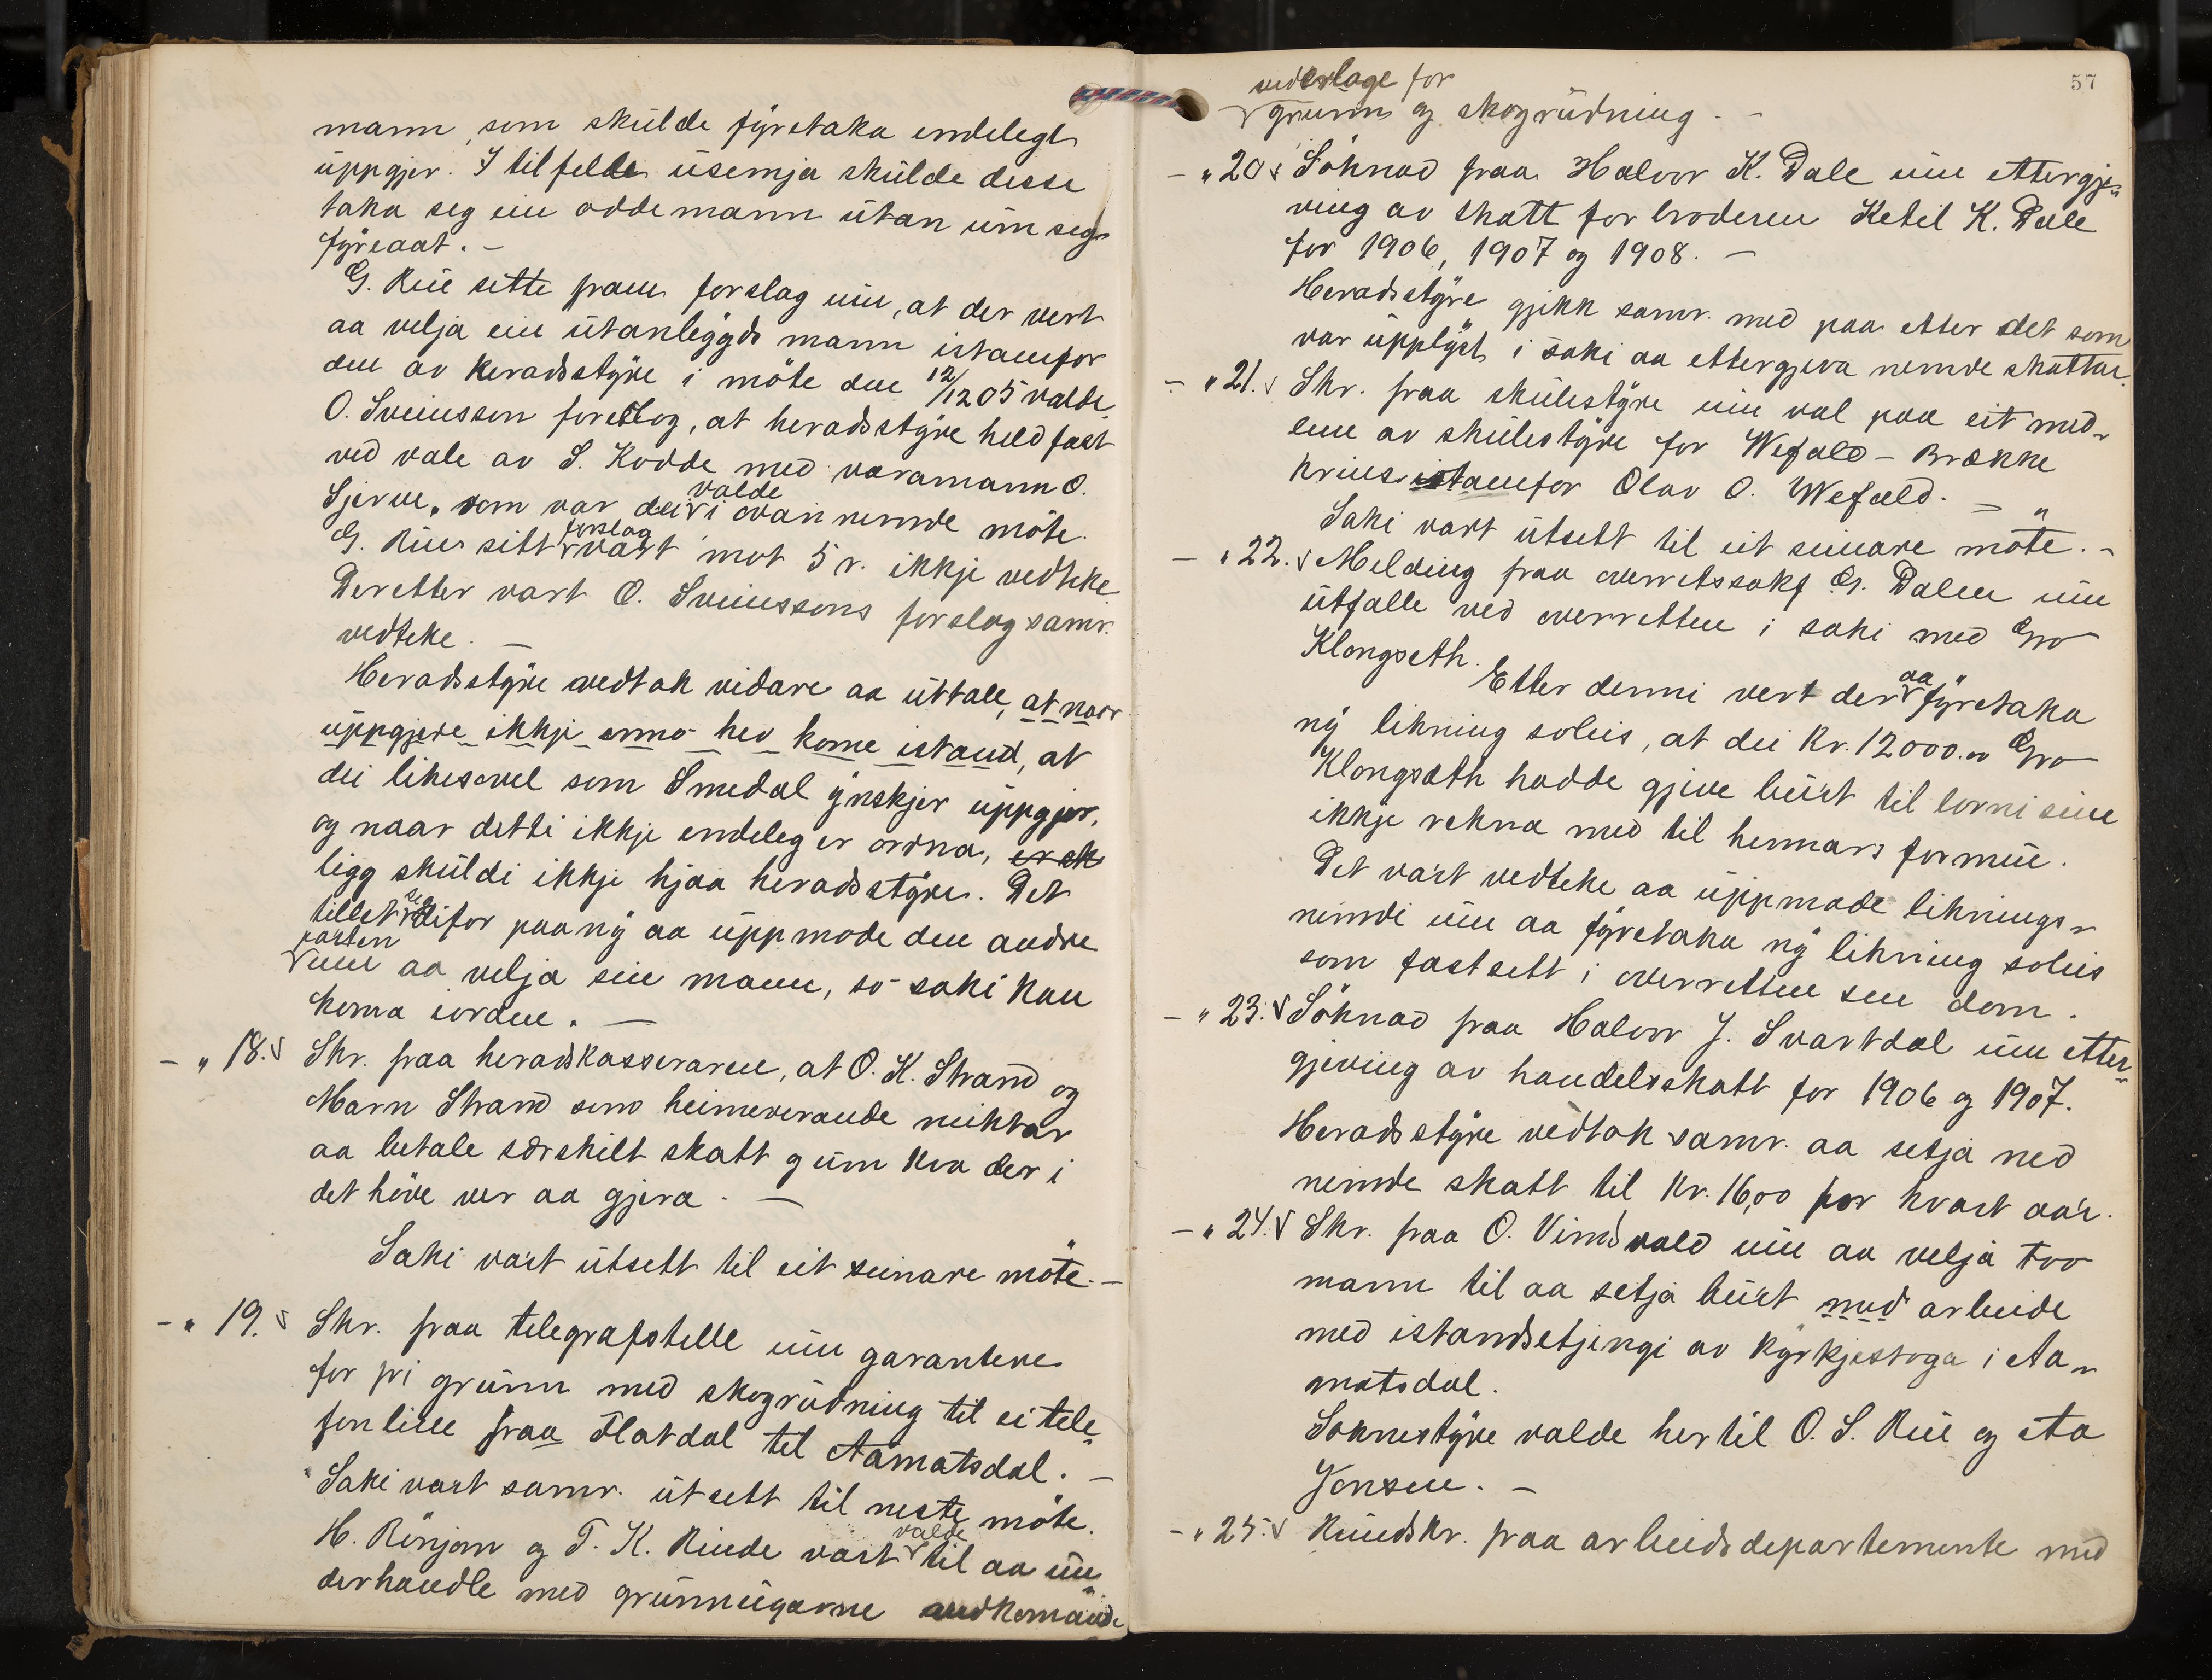 mann, som skulde fyretaka endelegt
uppgjer. I tilfelde usemja skulde desse
taka seg ein oddemann utan um seg
fyreaat. -
G. Rue sette fram forslag um, at der vert
aa velja ein utanbygds mann istaenfor
den av heradsstyre i möte den 12/12 05 valde.
O. Sveinsson foreslog, at heradsstyre held fast
ved vale av S. Kodde med varamann O.
Sjerve, som var dei valde i ovannemde möte.
G. Rues sitt forslag vart mot 5 r. ikkje vedteke
Deretter vart O. Sveinssons forslag samr.
vedteke. -
Heradsstyre vedtok vidare aa uttale, at naar
uppgjere ikkje enno hev kome istand, at
dei likesovel som Smedal ynskjer uppgjer,
og naar detti ikkje endeleg er ordna, er sk
ligg skuldi ikkje hjaa heradsstyre. Det
tillet seg difor paa ny aa uppmode den andre
parten um aa velja sin mann, so saki kan
koma iorden. -
- " 18. Skr. fraa heradskasseraren, at O. K. Strand og
Marn Strand som heimeverande neiktar
aa betale særskilt skatt g um kva der i
det höve ver aa gjera. -
Saki vart utsett til eit seinare möte. -
- " 19. Skr. fraa telegrafstelle um garantere
for fri grunn med skogrudning til ei tele„
fonline fraa Flatdal til Aamotsdal. -
Saki vart samr. utsett til neste möte.
H. Rönjom og T. K. Rinde vart valde til aa un„
derhandle med grunneigarne vedkomande
57
vederlage for
grunn og skogrudning. -
- " 20 Söknad fraa Halvor K. Dale um ettergje„
ving av skatt for broderen Ketil K. Dale
for 1906, 1907 og 1908. -
Heradsstyre gjikk samr. med paa etter det som
var upplyst i saki aa ettergjeva nemde skattar.
- " 21. Skr. fraa skulestyre um val paa eit med„
lem av skulestyre for Wefald - Brække
krins istaenfor Olav O. Wefald. - "
Saki vart utsett til eit seinare möte. -
- " 22. Melding fraa overretssakf. G. Dalen um
utfalle ved overretten i saki med Gro
Klongseth.
Etter denni vert der aa fyretaka
ny likning soleis, at dei Kr. 12000.00 Gro
Klongseth hadde gjeve burt til borni sine
ikkje rekna med til hennars formue.
Det vart vedteke aa uppmode liknings„
nemdi um aa fyretaka ny likning soleis
som fastsett i overretten sen dom.
- " 23. Söknad fraa Halvor J. Svartdal um etter„
gjeving av handelsskatt for 1906 og 1907.
Heradsstyre vedtok samr. aa setja ned
nemde skatt til Kr. 16,00 for kvart aar.
- " 24. Skr. fraa O. Vindsvald um aa velja tvo
mann til aa setja burt med arbeide
med istandsetjingi av kyrkjestoga i Aa„
motsdal.
Soknestyre valde hertil O. S. Rue og Aa
Jonsen. -
- " 25. Rundskr. fraa arbeidsdepartemente med